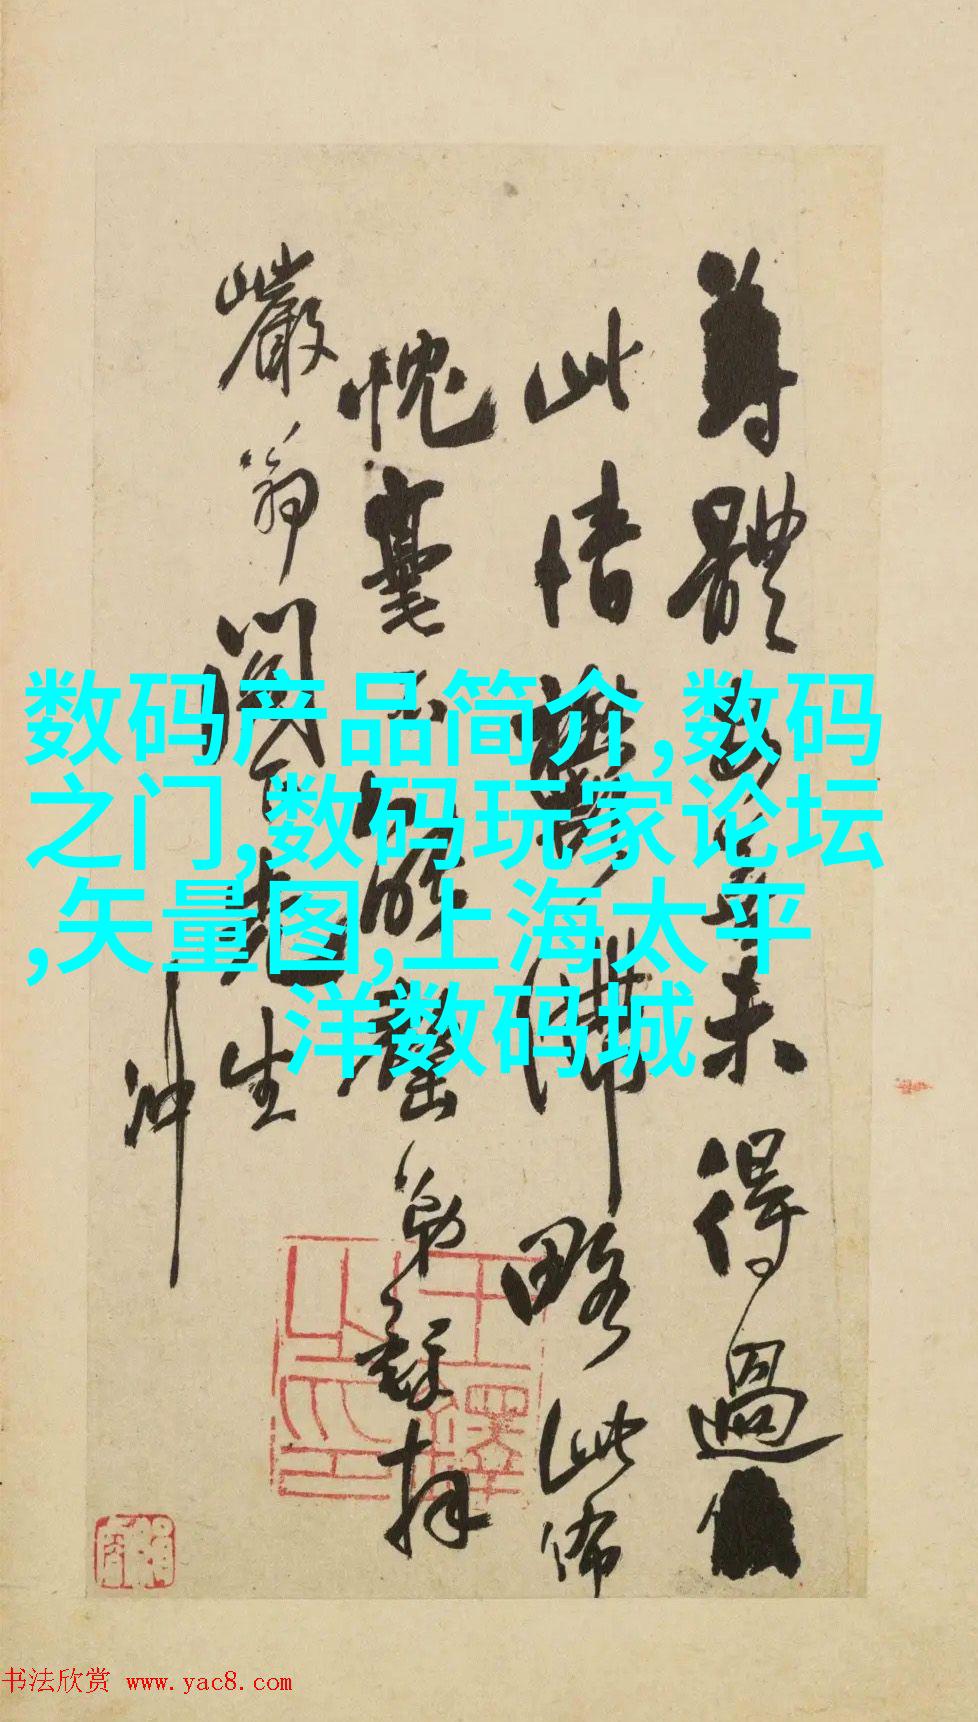 数码产品简介,数码
之门,数码玩家论坛
,矢量图,上海太平
洋数码城
尊體未得過
此情略此佈
愧罄弟拜
嚴翁閣先生
冲
书法欣赏 www.yac8.com